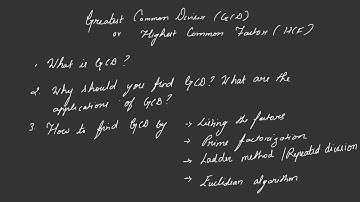 Greatest Common Divisor (GCD)
or Highest Common Factor (HCF)
1. What is GCD?
2. Why should you find GCD? What are the
applications of GCD?
3. How to find GCD by → Listing the factors
→ Prime factorization
→ Ladder method / Repeated division
→ Euclidean algorithm